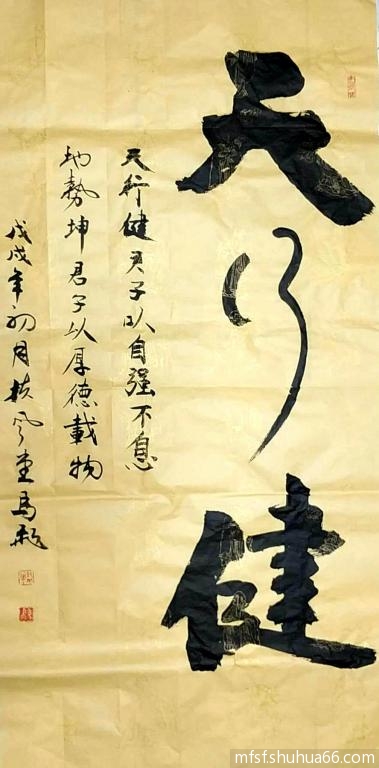 天行健
天行健君子以自强不息
地勢坤君子以厚德載物
戊戌年初月扶风堂馬
mfsf.shuhua66.com